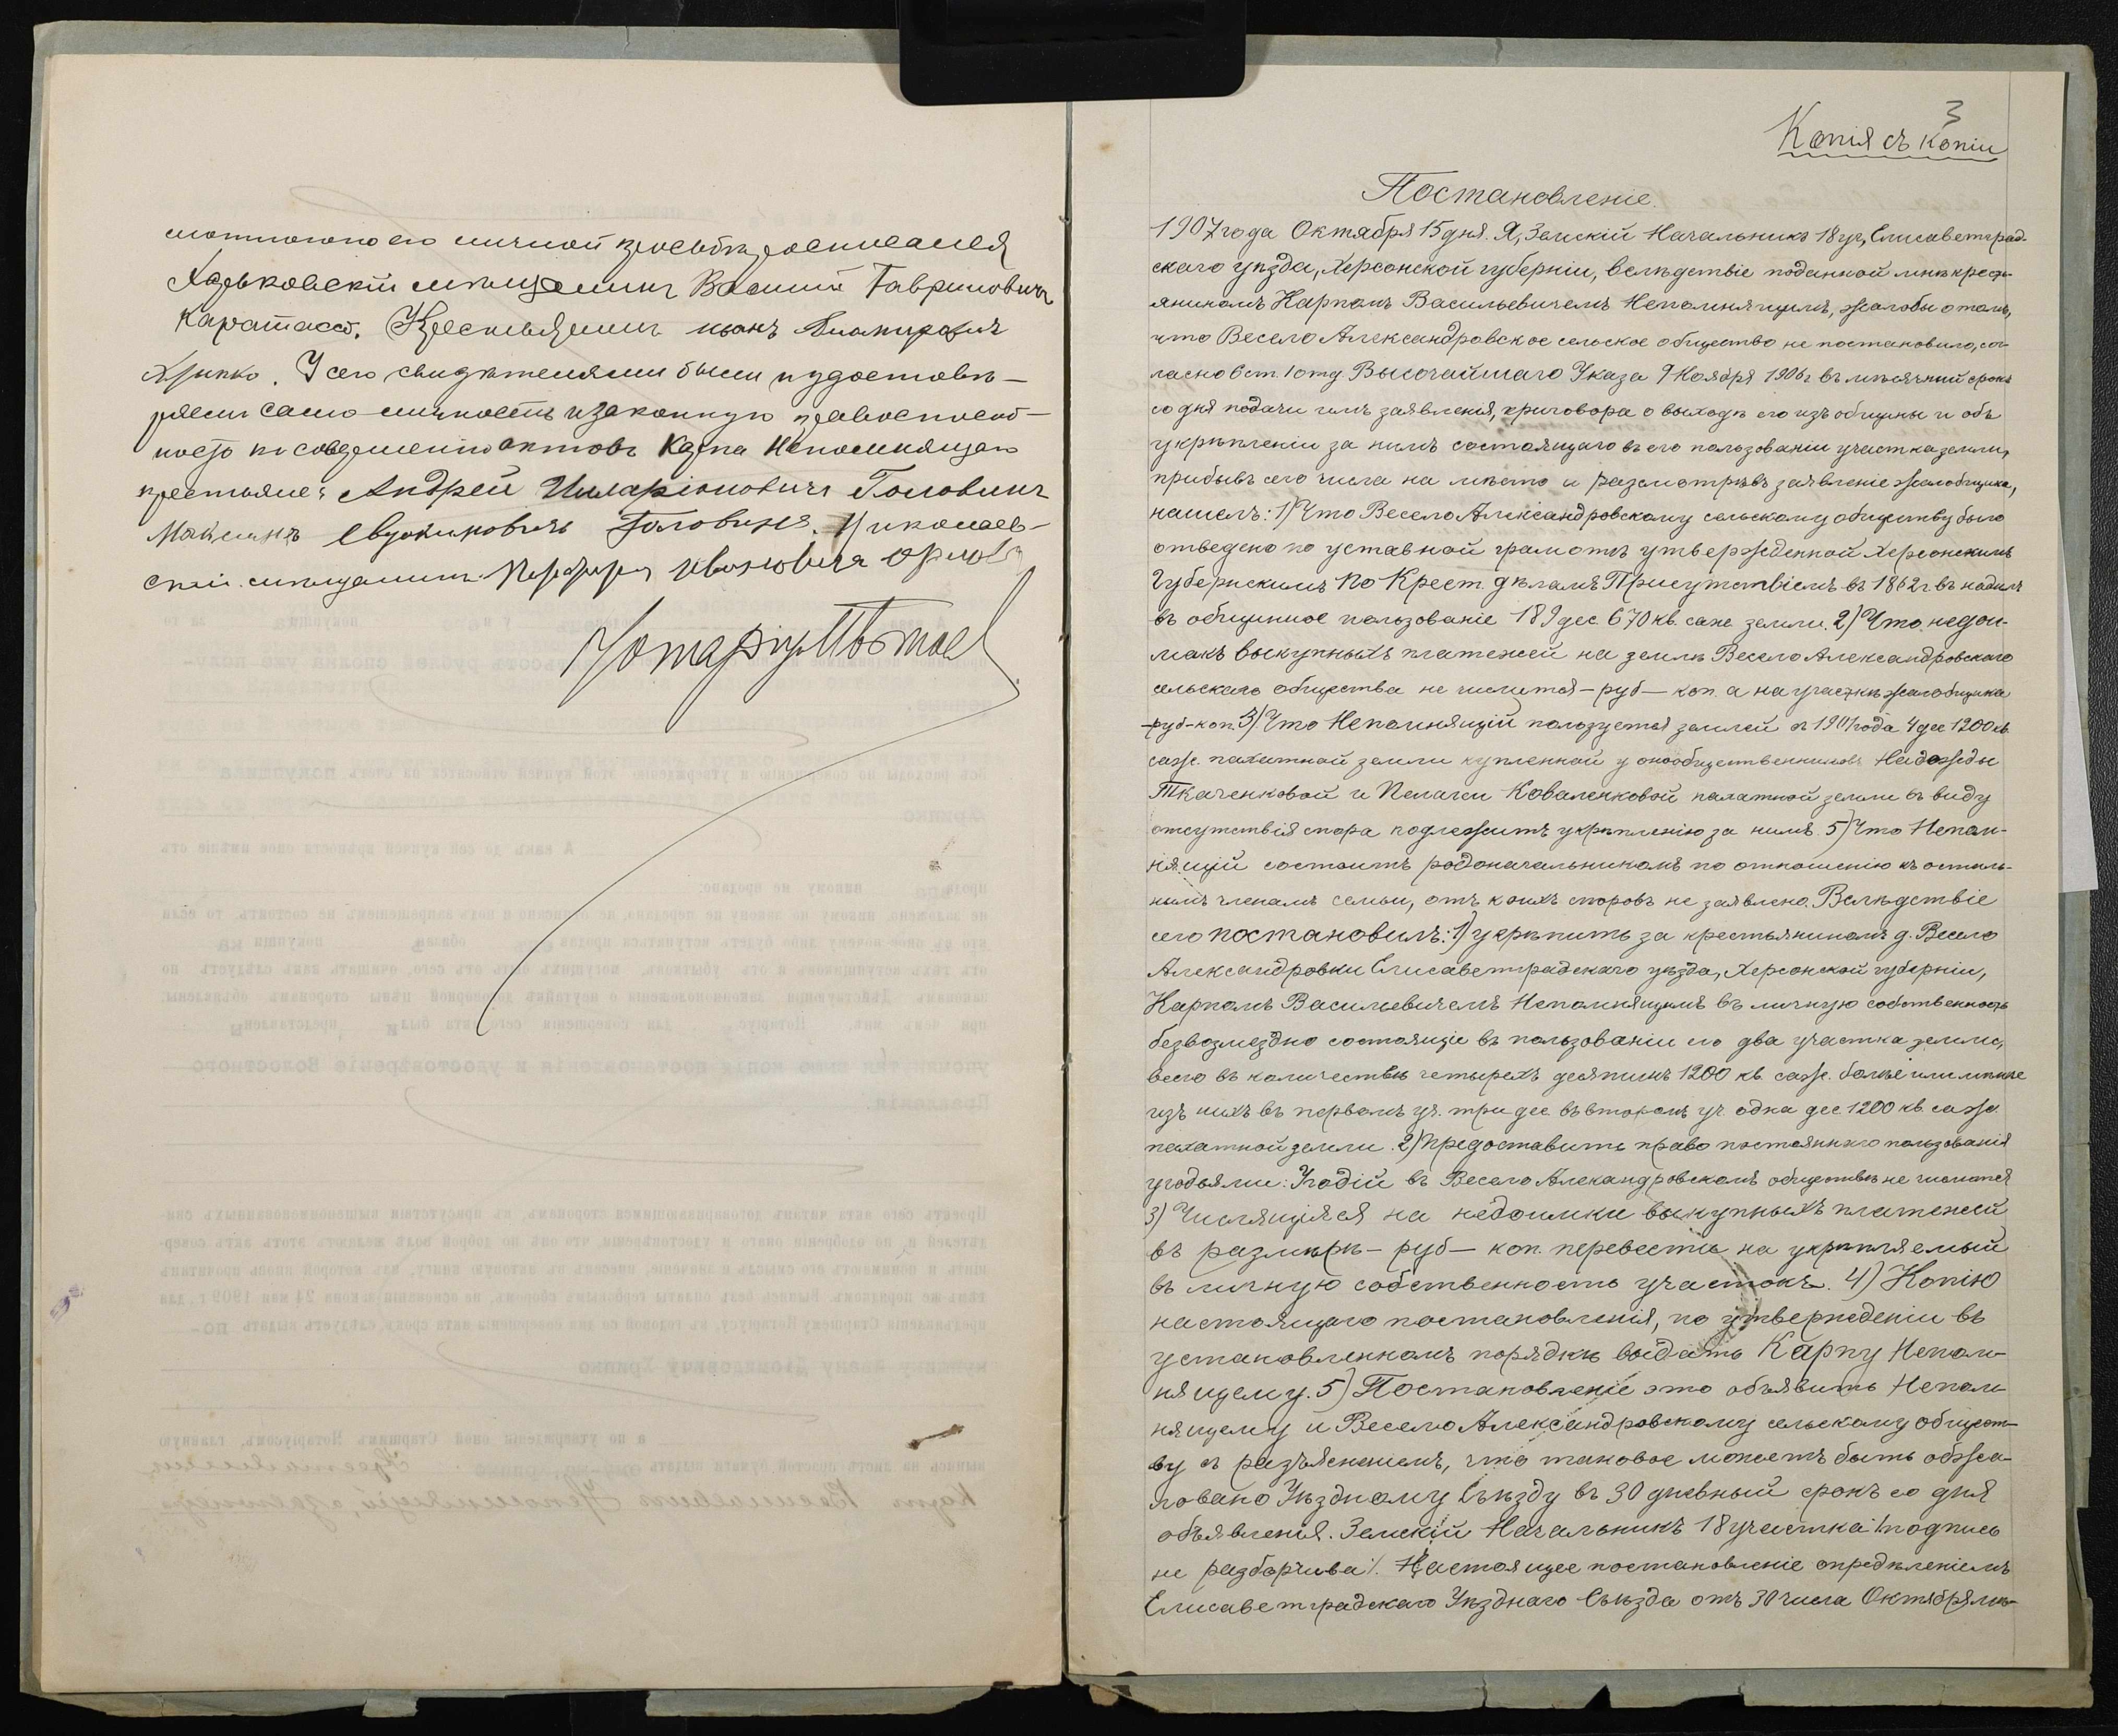 его личной просьбѣ росписался
Харьковскій мѣщанинъ Василій Гавриловичъ
Каратассо. Крестьянинъ Иванъ
Хрипко. У сего свидѣтелями были и удостовѣ-
ряемъ самоличность и законную правоспособ-
ность къ совершенію актовъ Карпа Непомнящаго
крестьяне: Андрей Илларіоновичъ Головинъ
Максимъ Евдокимовичъ Головинъ. Николаев-
скій мѣщанинъ Ивановичъ Орлов
Нотаріусъ
3
Копія съ копіи
Постановленіе.
1907 года Октября 15 дня. Я, Земскій Начальникъ 18 уч., Елисаветград-
скаго уѣзда, Херсонской губерніи, вслѣдствіе поданной мнѣ кресть-
яниномъ Карпомъ Васильевичемъ Непомнящимъ, жалобы о томъ,
что Весело Александровское сельское общество не постановило, сог-
ласно 6 ст. 1 отд. Высочайшаго Указа 9 Ноября 1906 г. въ мѣсячный срокъ
со дня подачи имъ заявленія, приговора о выходѣ его изъ общины и объ
укрѣпленіи за нимъ состоящаго въ его пользованіи участка земли,
прибывъ сего числа на мѣсто и разсмотрѣвъ заявленіе жалобщика,
нашелъ: 1) Что Весело Александровскому сельскому обществу было
отведено по уставной грамотѣ утвержденной Херсонскимъ
Губернскимъ по Крест. дѣламъ Присутствіемъ въ 1862 г. въ надѣлъ
въ общинное пользованіе 189 дес. 670 кв. саж. земли. 2) Что недои-
мокъ выкупныхъ платежей на землѣ Весело Александровскаго
сельскаго общества не числится — руб — коп. а на участкѣ жалобщика
— руб — коп. 3) Что Непомнящій пользуется землей съ 1901 года 4 дес 1200 кв.
саж. пахатной земли купленной у Надежды
Ткаченковой и Пелагеи Коваленковой пахатной земли въ виду
отсутствія спора подлежитъ укрѣпленію за нимъ. 5) Что Непом-
нящій состоитъ родоначальникомъ по отношенію къ осталь-
нымъ членамъ семьи, отъ коихъ споровъ не заявлено. Вслѣдствіе
сего постановилъ: 1) укрѣпить за крестьяниномъ д. Весело
Александровки Елисаветградскаго уѣзда, Херсонской губерніи,
Карпомъ Васильевичемъ Непомнящимъ въ личную собственность
безвозмездно состоящіе въ пользованіи его два участка земли,
всего въ количествѣ четырехъ десятинъ 1200 кв. саж. болѣе или менѣе
изъ нихъ въ первомъ уч. три дес. въ второмъ уч. одна дес 1200 кв. саж.
пахатной земли. 2) Предоставить право постояннаго пользованія
угодьями: Угодій въ Весело Александровскомъ обществѣ не имѣется
3) Числящіяся на недоимки выкупныхъ платежей
въ размѣрѣ — руб — коп. перевести на укрѣпляемый
въ личную собственность участокъ. 4) Копію
настоящаго постановленія, по утвержденіи въ
установленномъ порядкѣ выдать Карпу Непом-
нящему. 5) Постановленіе это объявить Непом-
нящему и Весело Александровскому сельскому общест-
ву съ разъясненіемъ, что таковое можетъ быть обжа-
ловано Уѣздному Съѣзду въ 30 дневный срокъ со дня
объявленія. Земскій Начальникъ 18 участка /подпись
не разборчива/. Настоящее постановленіе опредѣленіемъ
Елисаветградскаго Уѣзднаго Съѣзда отъ 30 числа Октября мѣ-